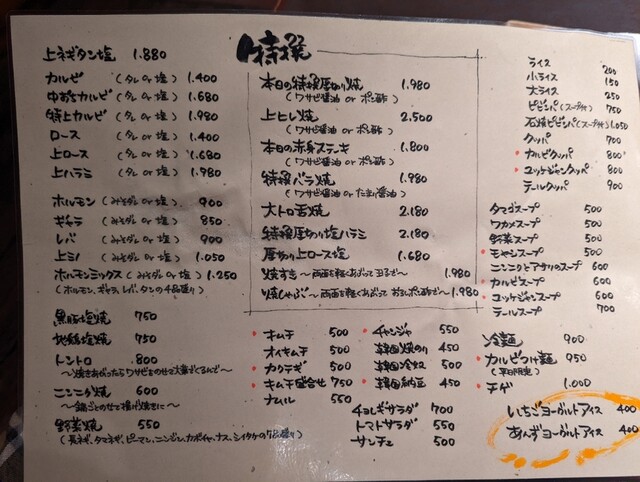 上ネギタン塩 1.880
カルビ (タレ or 塩) 1.400
中おちカルビ (タレ or 塩) 1.680
特上カルビ (タレ or 塩) 1.980
ロース (タレ or 塩) 1.400
上ロース (タレ or 塩) 1.680
上ハラミ (タレ or 塩) 1.980
ホルモン (みそダレ or 塩) 900
ギャラ (みそダレ or 塩) 850
レバ (みそダレ or 塩) 900
上ミノ (みそダレ or 塩) 1.050
ホルモンミックス (みそダレ or 塩) 1.250
(ホルモン、ギャラ、レバ、タンの4品盛り)
黒豚塩焼 750
地鶏塩焼 750
トントロ 800
〜焼きあがったらワサビをのせて大葉でくるんで〜
ニンニク焼 600
〜鍋ごとのせて揚げ焼きに〜
野菜焼 550
(長ネギ、タマネギ、ピーマン、ニンジン、カボチャ、ナス、シイタケの7品盛り)
特撰
本日の特撰厚切り焼 1.980
(ワサビ醤油 or ポン酢)
上ヒレ焼 2.500
(ワサビ醤油 or ポン酢)
本日の赤身ステーキ 1.800
(ワサビ醤油 or ポン酢)
特撰バラ焼 1.980
(ワサビ醤油 or たまり醤油)
大トロ舌焼 2.180
特撰厚切り塩ハラミ 2.180
厚切り上ロース塩 1.680
焼すき〜両面を軽くあぶって玉子で〜 1.980
焼しゃぶ〜両面を軽くあぶっておろしポン酢で〜 1.980
キムチ 500
オイキムチ 500
カクテギ 500
キムチ盛合せ 750
ナムル 550
チャンジャ 550
韓国焼のり 450
韓国冷奴 500
韓国納豆 450
チョレギサラダ 700
トマトサラダ 550
サンチュ 500
ライス 200
小ライス 150
大ライス 250
ビビンバ(スープ付) 750
石焼ビビンバ(スープ付) 1.050
クッパ 700
カルビクッパ 800
ユッケジャンクッパ 800
テールクッパ 900
タマゴスープ 500
ワカメスープ 500
野菜スープ 500
モヤシスープ 500
ニンニクとアサリのスープ 600
カルビスープ 600
ユッケジャンスープ 600
テールスープ 700
冷麺 900
カルビつけ麺 950
(平日限定)
チゲ 1.000
いちごヨーグルトアイス 400
あんずヨーグルトアイス 400